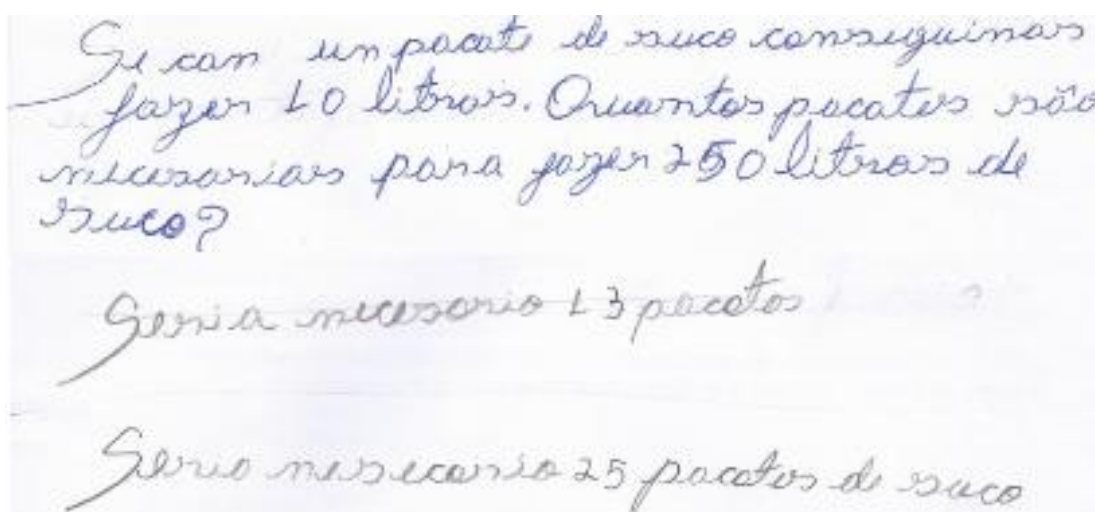 Se com un pacote de suco conseguimos
fazer 10 litros. Quantos pacotes são
nicesarias para fazer 250 litros de
suco?
Seria nicesario 13 pacotes
Serio nesecario 25 pacotes de suco